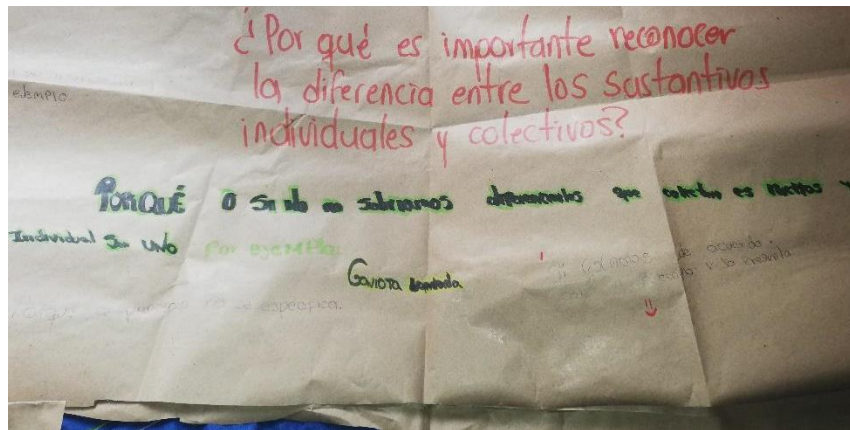 ¿Por qué es importante reconocer
la diferencia entre los sustantivos
individuales y colectivos?
ejemplo
PORQUÉ O si no no sabriamos diferenciarlos que colectivo es muchos y
Individual Son UNO Por ejemplo:
Gaviota bandada
Si estamos de acuerdo.
y la maqueta
no se especifica.